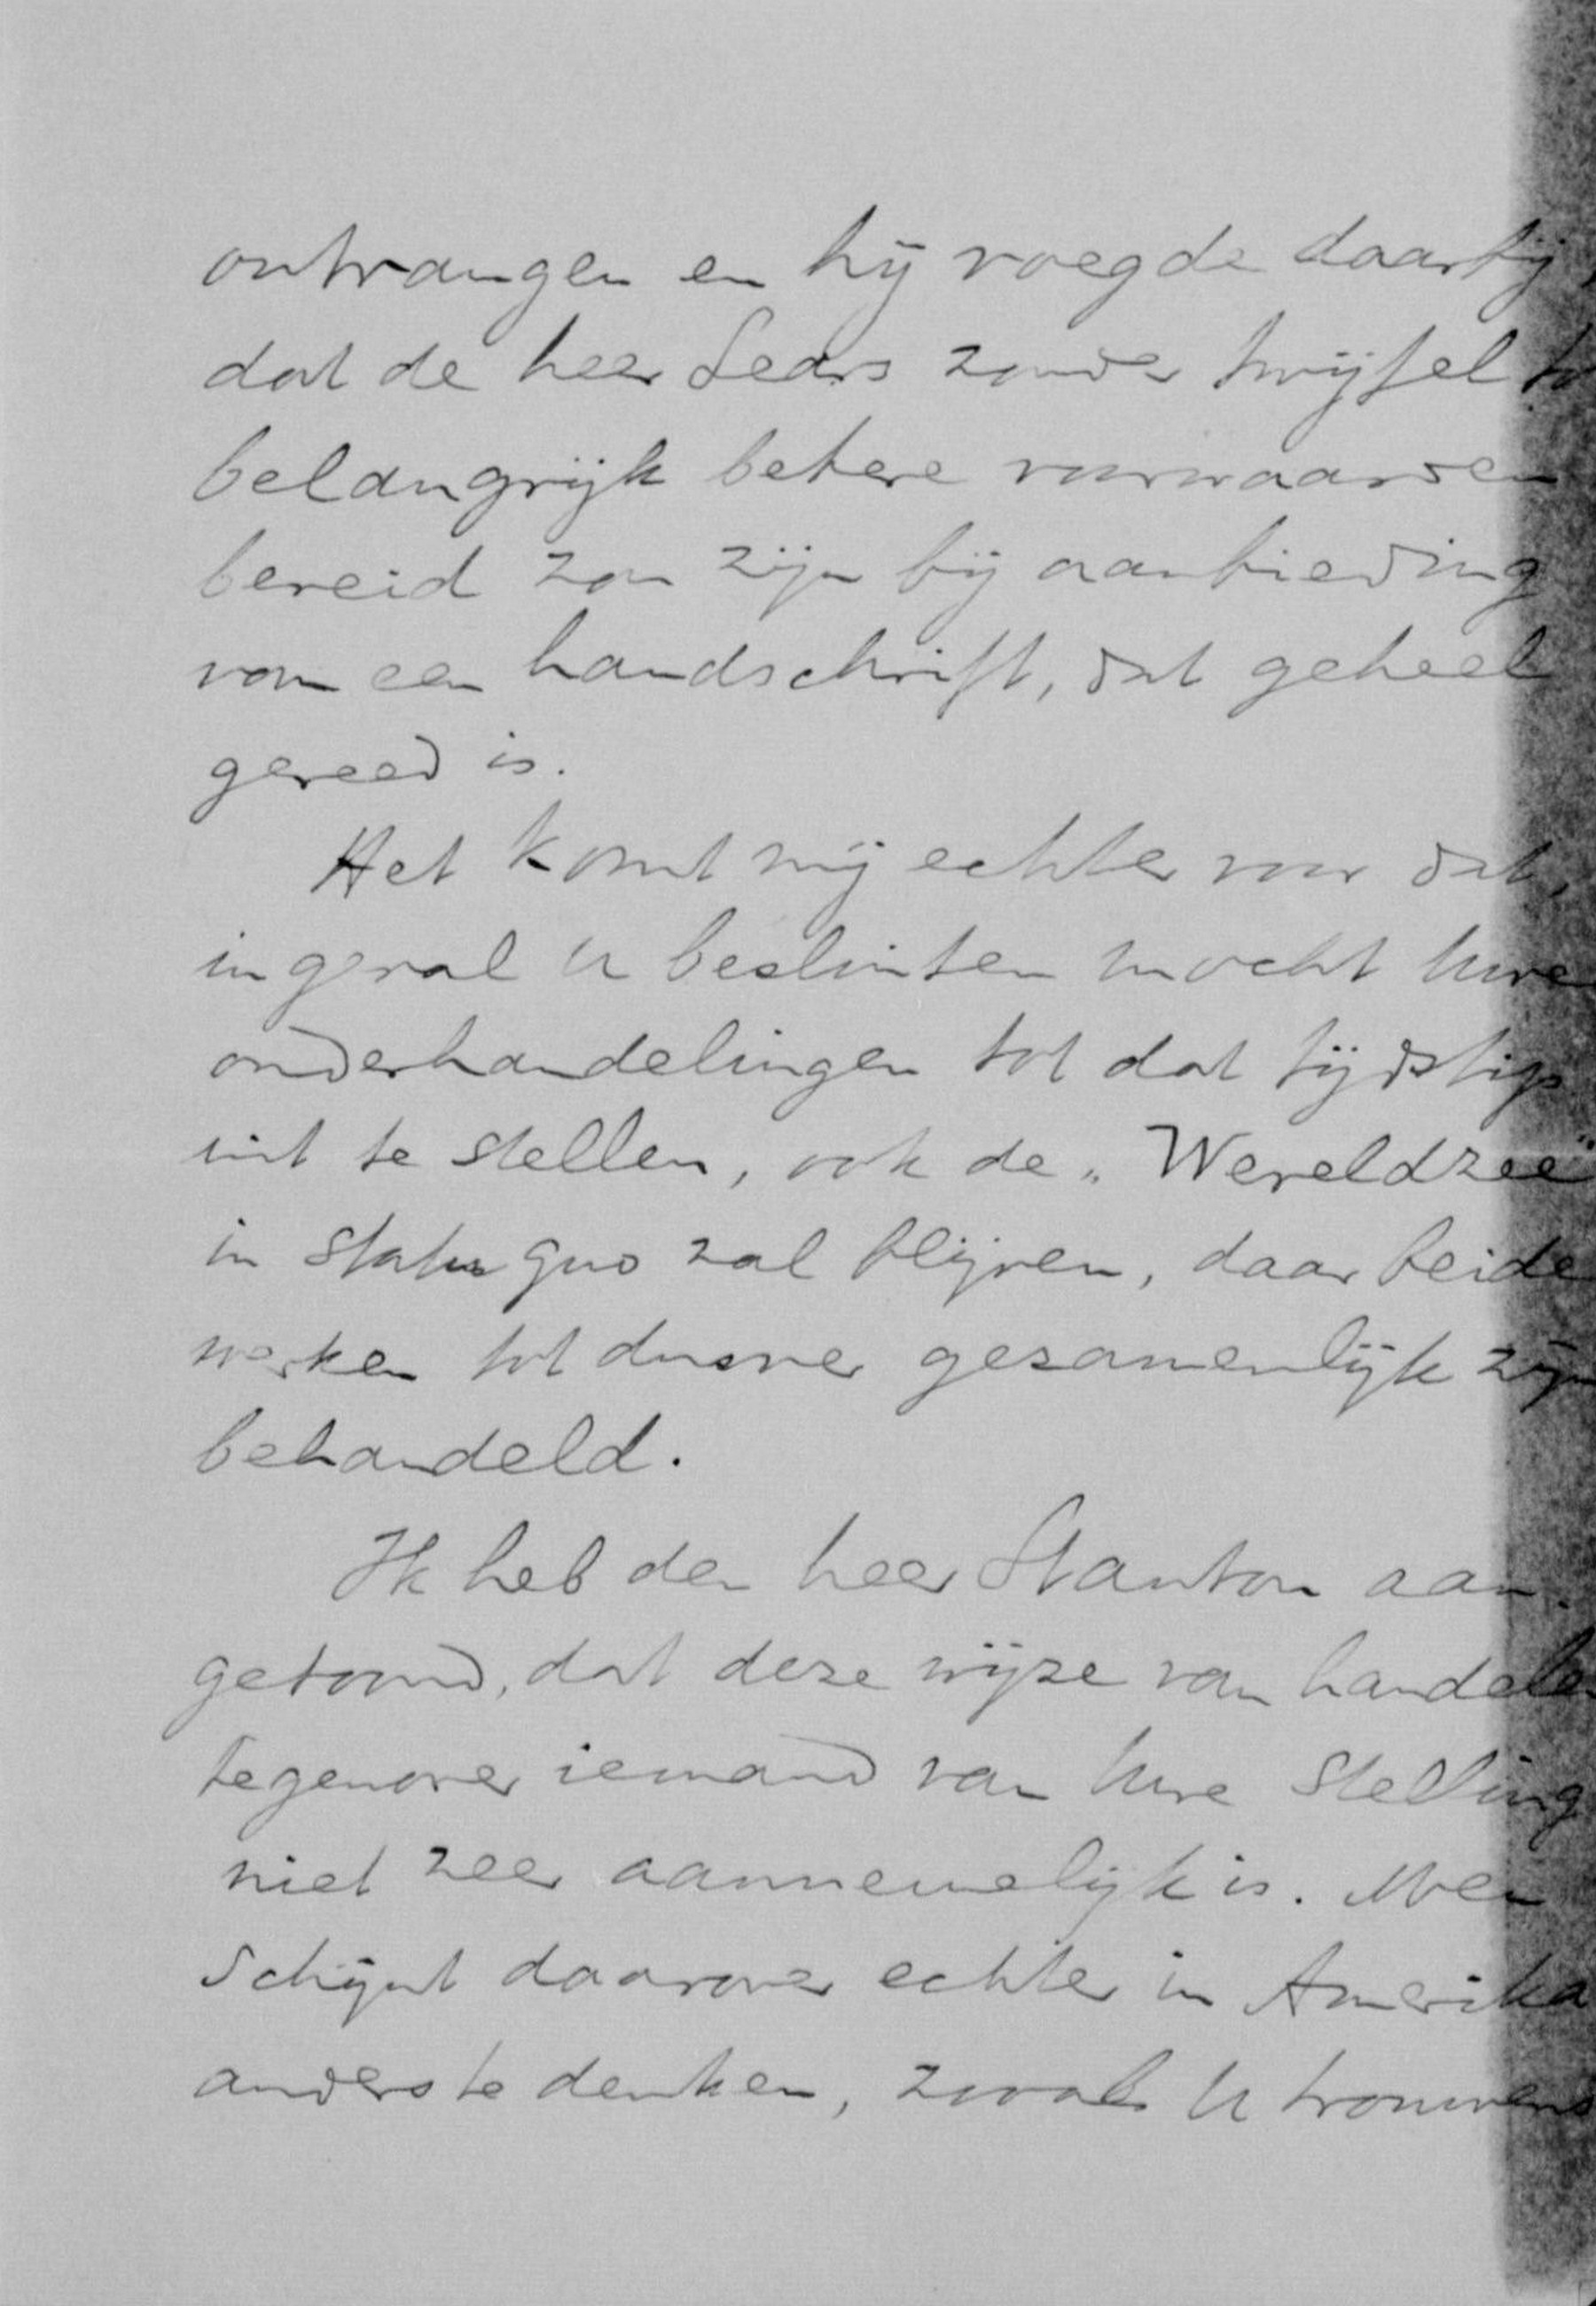 ontvangen en hij voegde daarbij,
dat de heer Sears zonder twijfel tot
belangrijk betere voorwaarden
bereid zou zijn bij aanbieding
van een handschrift, dat geheel
gereed is.
Het komt mij echter voor dat,
ingeval U besluiten mocht Uwe
onderhandelingen tot dat tijdstip
uit te stellen, ook de „Wereldzee"
in status quo zal blijven, daar beide
werken tot dusver gezamenlijk zijn
behandeld.
Ik heb den heer Stanton aan-
getoond, dat deze wijze van handelen
tegenover iemand van Uwe stelling
niet zeer aannemelijk is. Men
schijnt daarover echter in Amerika
anders te denken, zooals U trouwens